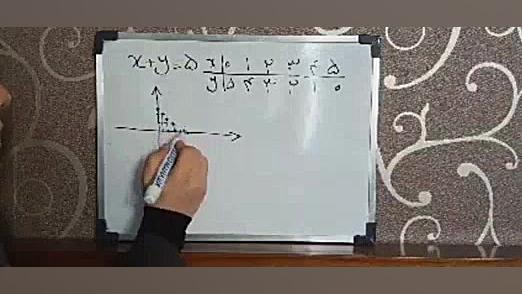 x+y=۵
x | ۰ ۱ ۲ ۳ ۴ ۵
y | ۵ ۴ ۳ ۲ ۱ ۰